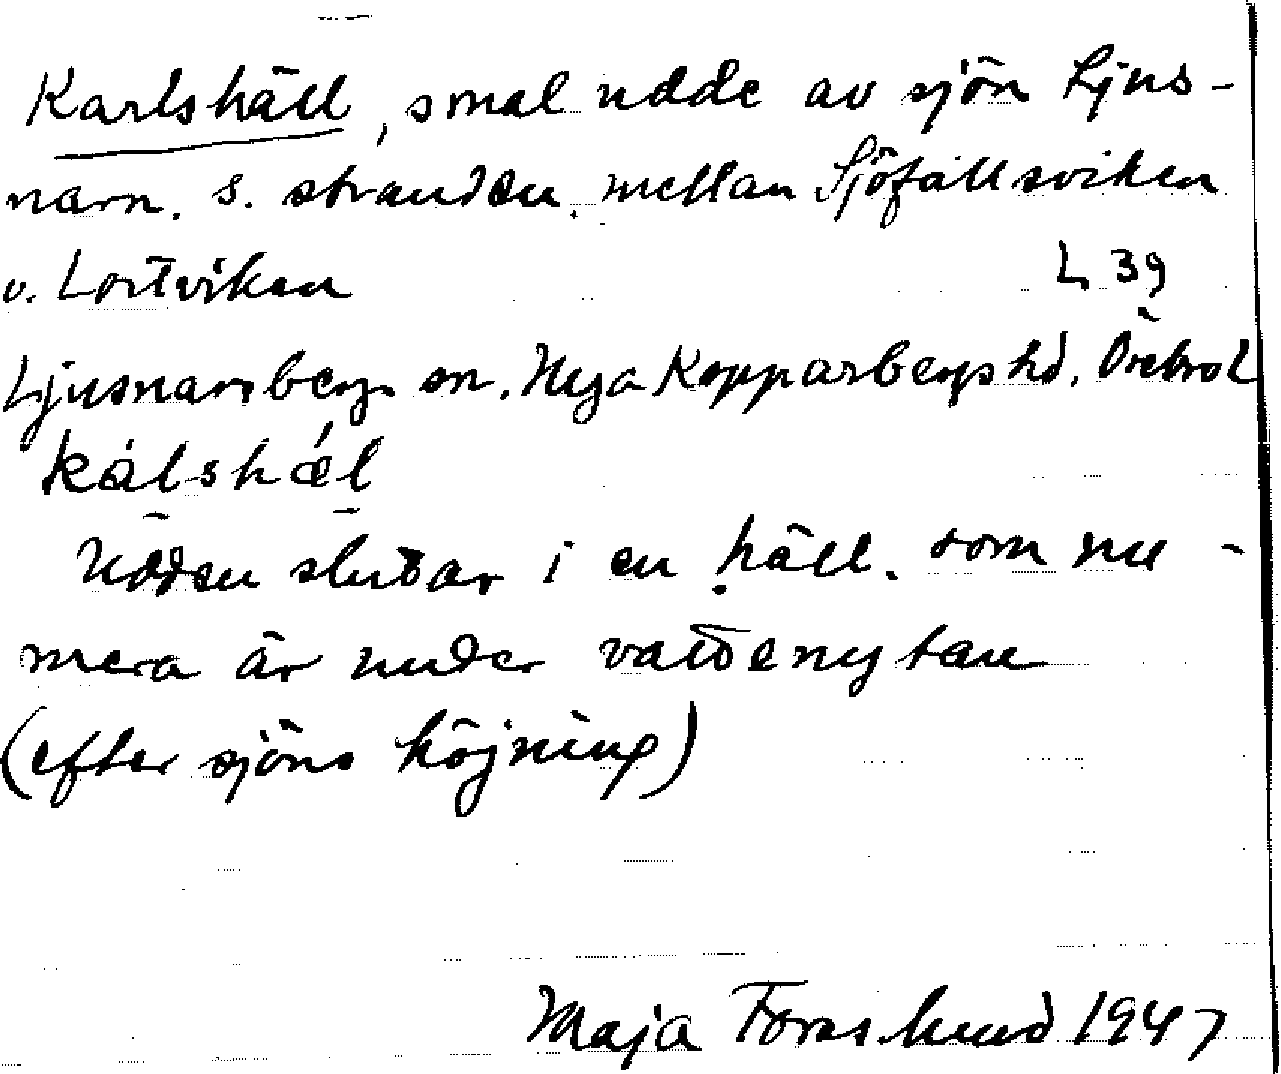 Karlshäll, smal udde av sjön Ljus-
narn, S. stranden, mellan Sjöfallsviken
o. Lortviken L 39
Ljusnarsberg sn. Nya Kopparbergs hd. Örebro l
kálshǽl
Udden slutar i en häll, som nu-
mera är under vattenytan
(efter sjöns höjning)
Maja Forsslund 1947